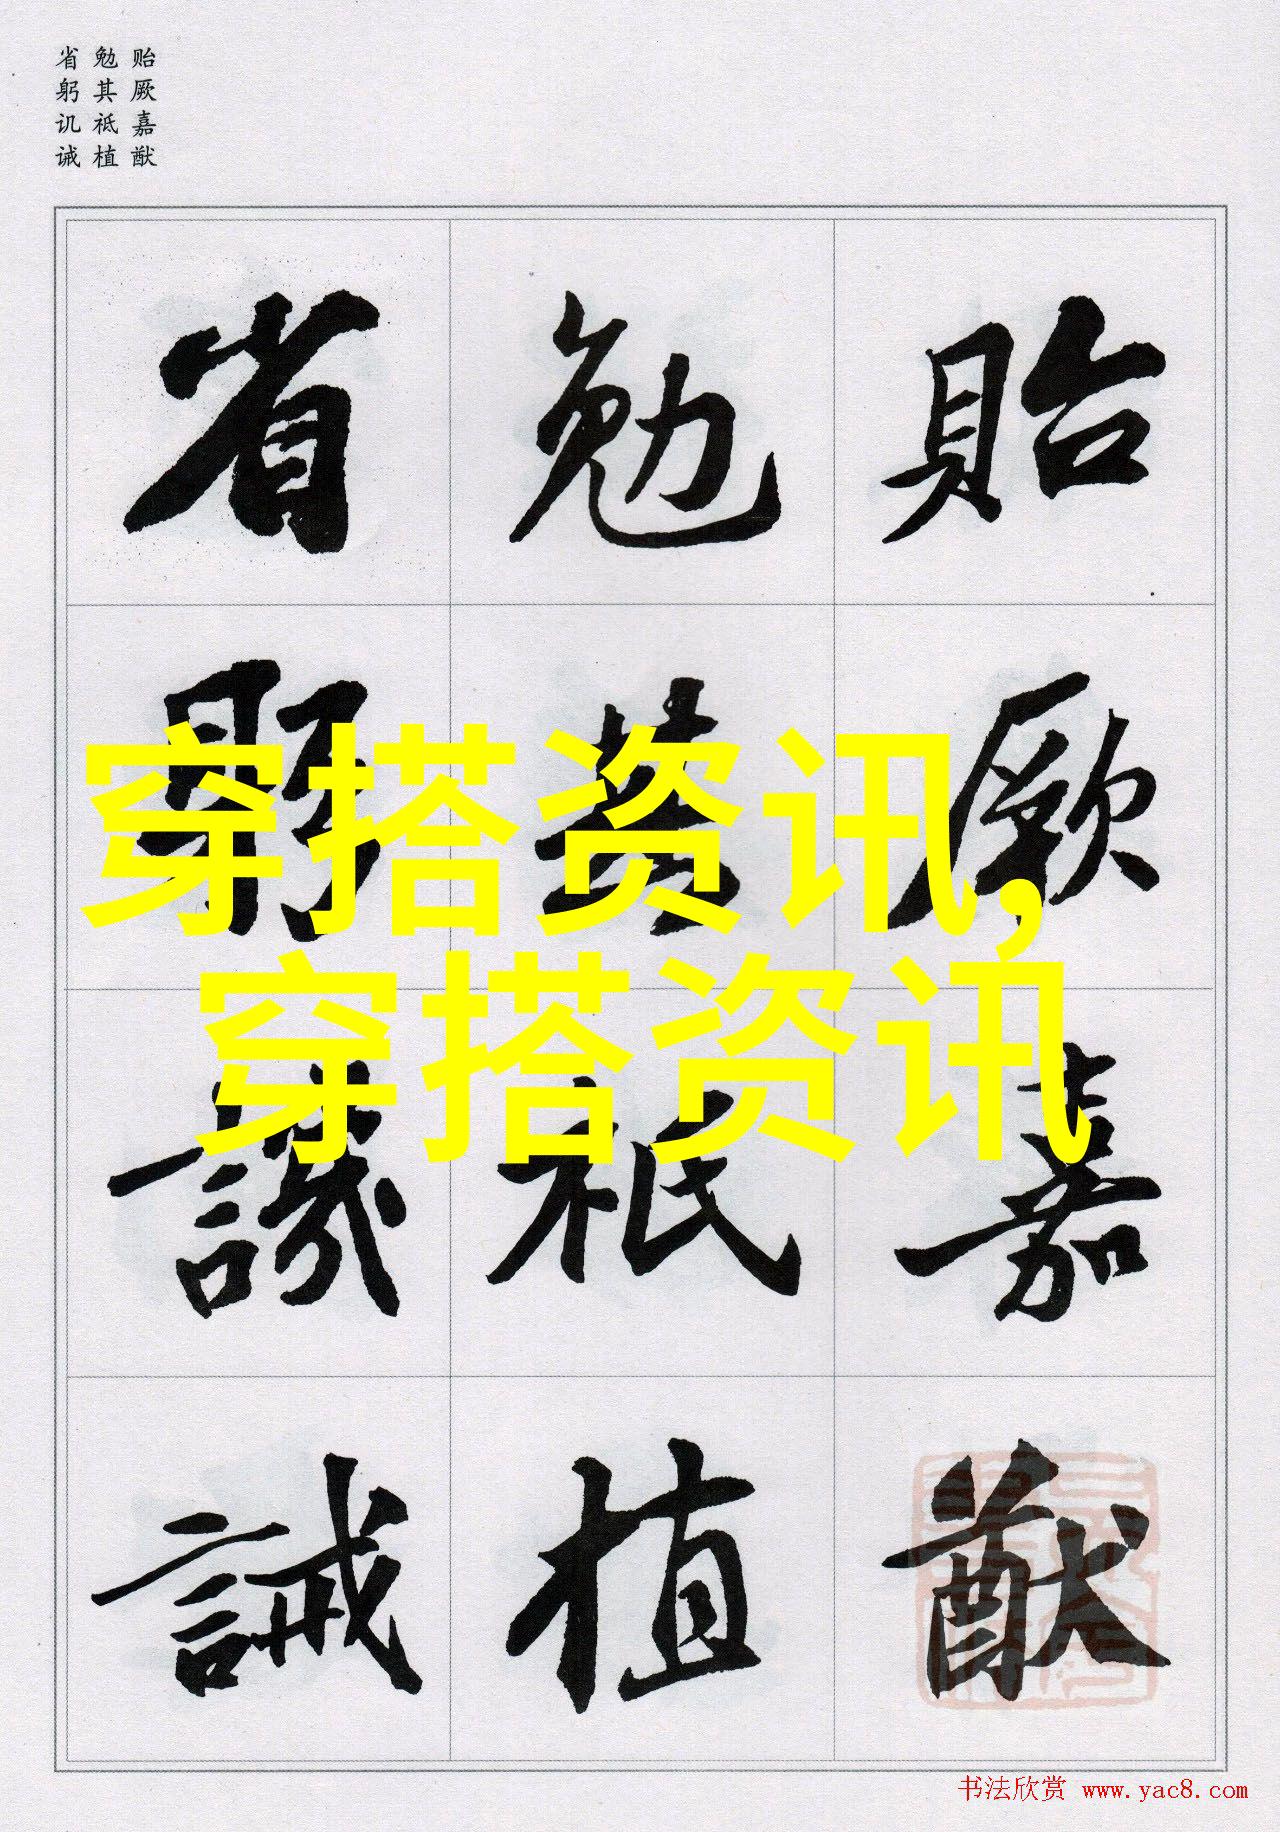 贻厥嘉猷
勉其祗植
省躬讥诫
貽厥嘉猷
勉其祗植
省躬譏誡
穿搭资讯,
穿搭资讯
书法欣赏 www.yac8.com